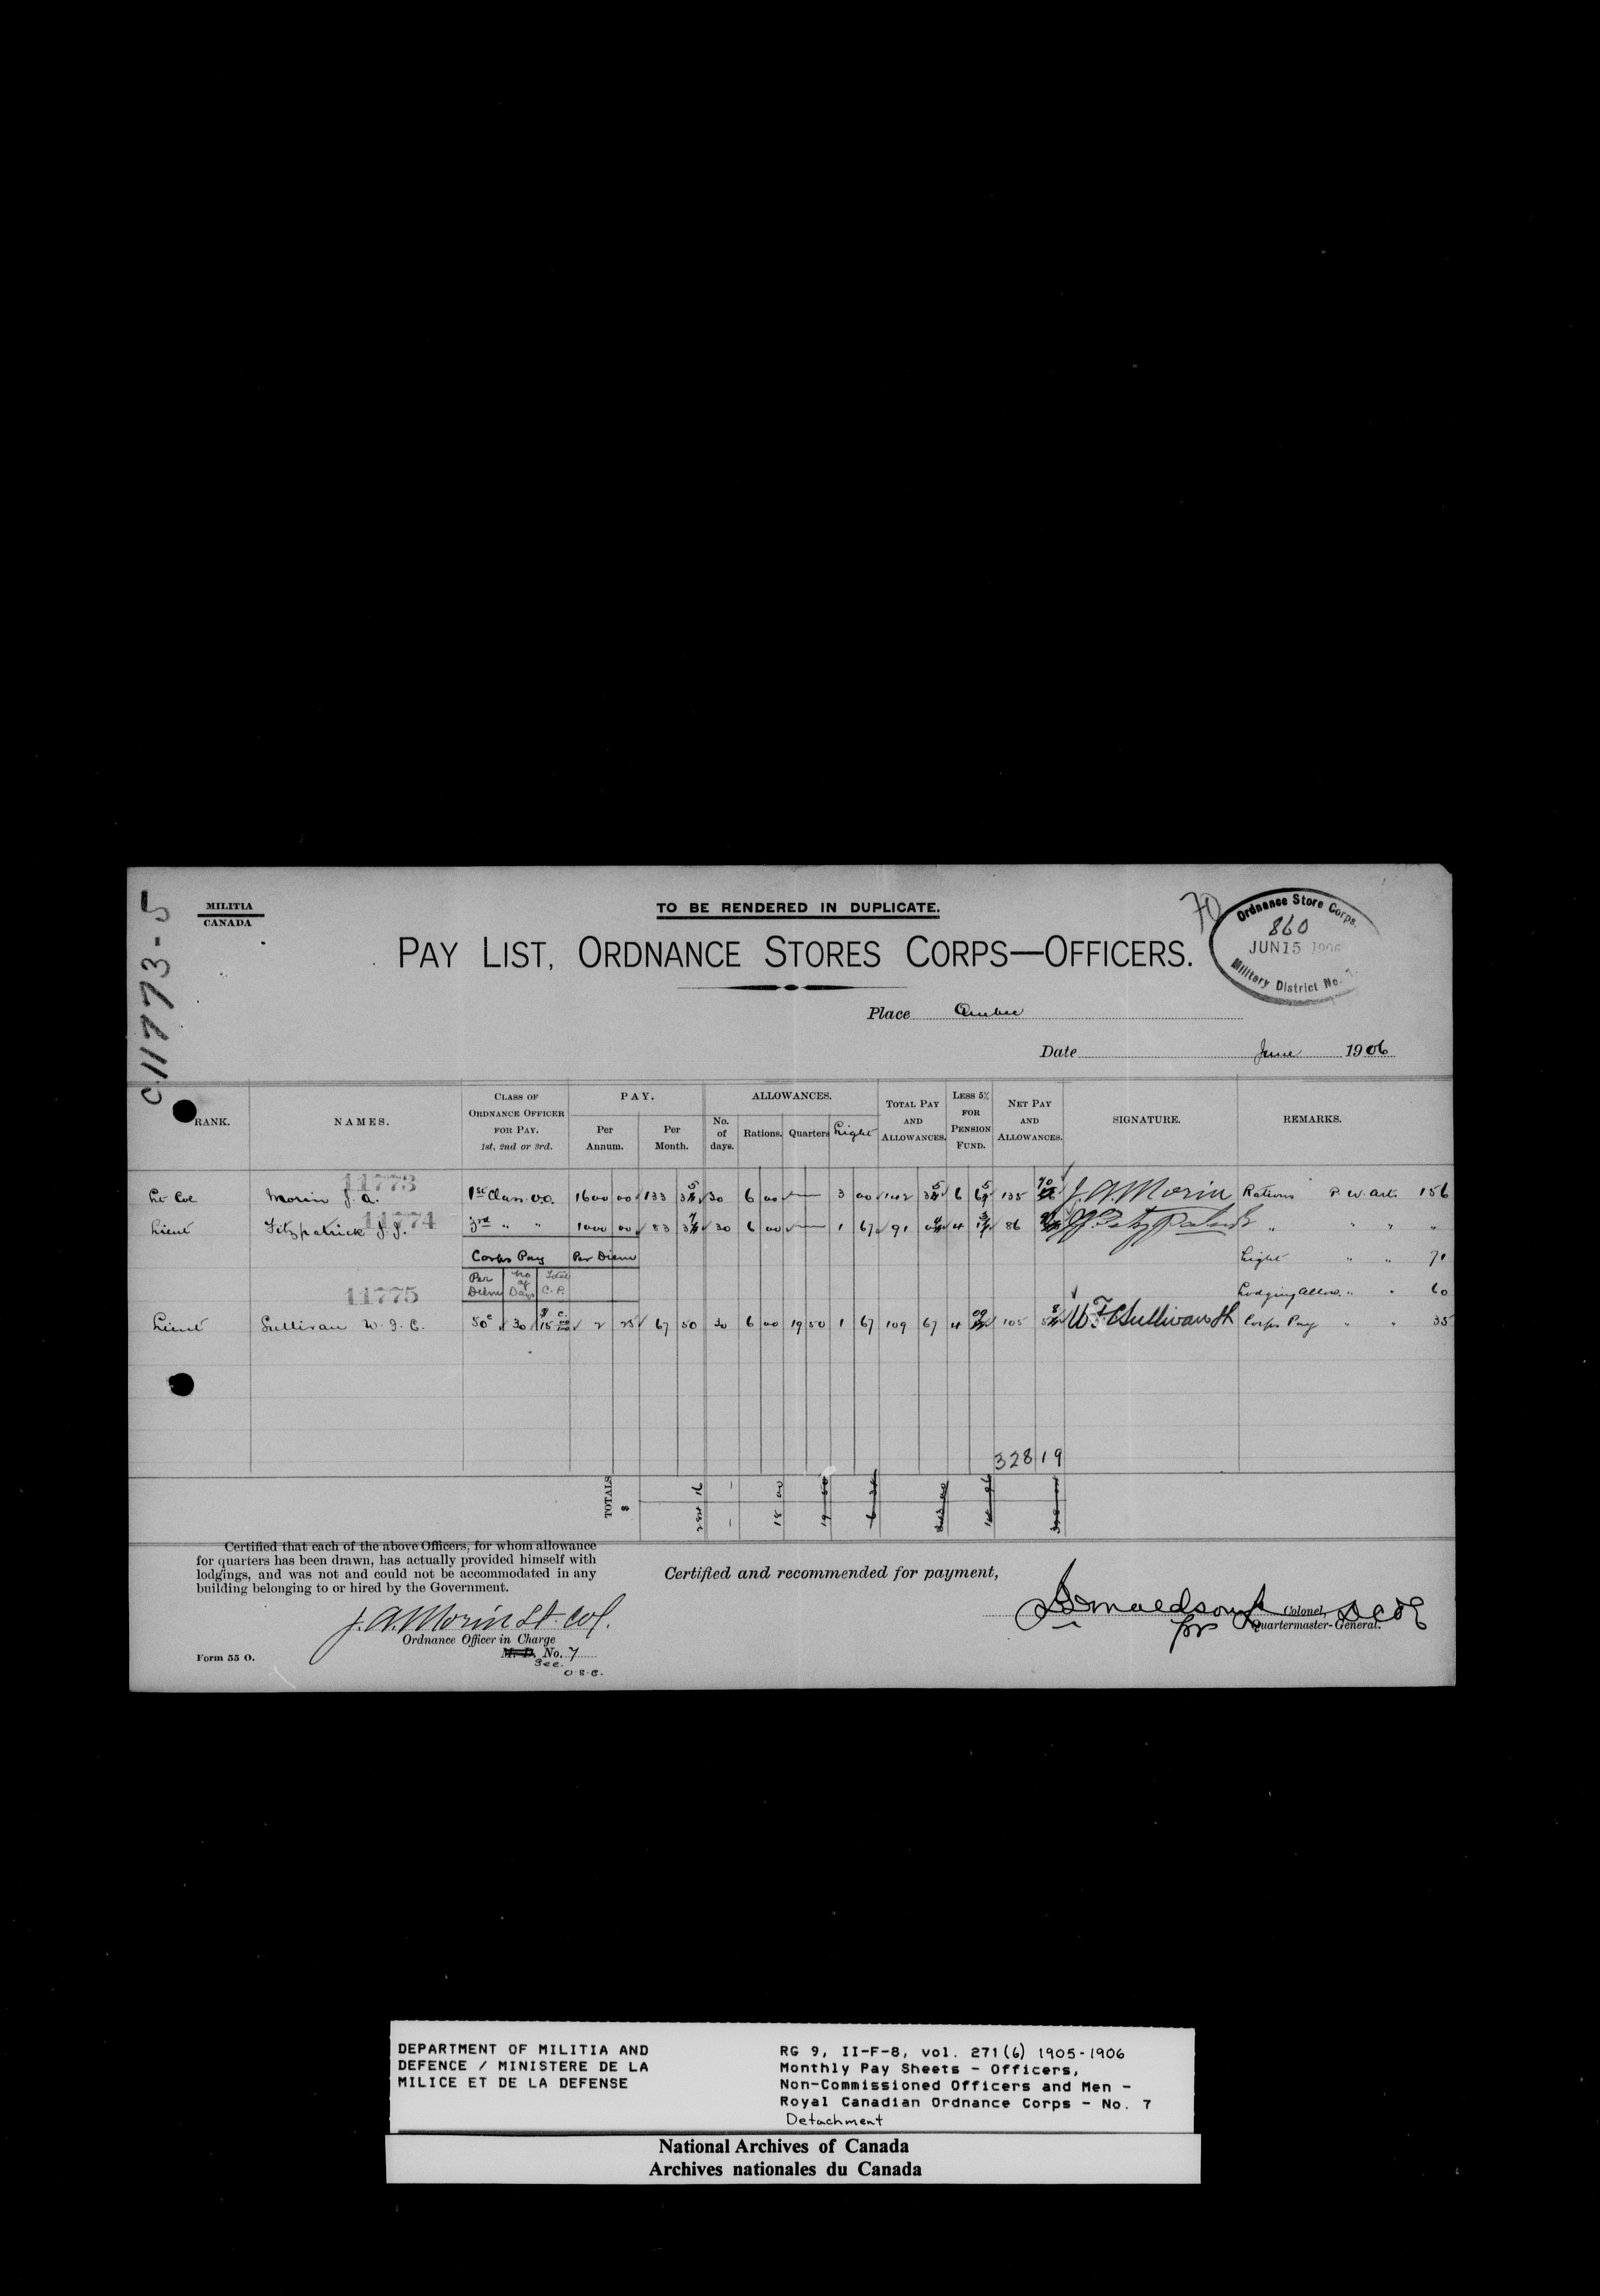 C11773-5
MILITIA
CANADA
TO BE RENDERED IN DUPLICATE.
70
Ordnance Store Corps.
860
JUN 15 1906
Military District No. 7
PAY LIST, ORDNANCE STORES CORPS—OFFICERS.
Place Quebec
Date June 1906
RANK. NAMES. CLASS OF ORDNANCE OFFICER FOR PAY. 1st, 2nd or 3rd. PAY. Per Annum. Per Month. ALLOWANCES. No. of days. Rations. Quarters Light TOTAL PAY AND ALLOWANCES. LESS 5% FOR PENSION FUND. NET PAY AND ALLOWANCES. SIGNATURE. REMARKS.
11773
Lt Col Morin J. A. 1st Class O.O. 1600 00 133 30 6 00 — 3 00 142 6 135 70 J. A. Morin Rations P. W. Art. 156
11774
Lieut Fitzpatrick J. J. 3rd " " 1000 00 83 30 6 00 — 1 67 91 4 86 " " " "
Corps Pay Per Diem Light " " 71
11775
Per Diem No of Days Total C. P. Lodging Allow. " " 60
Lieut Sullivan W. F. C. 50c 30 $ c. 15 00 2 25 67 50 30 6 00 19 50 1 67 109 67 4 105 W. F. C. Sullivan Lt Corps Pay " " 35
328 19
TOTALS $ 284 16 — — 18 00 19 50 6 34
Certified that each of the above Officers, for whom allowance
for quarters has been drawn, has actually provided himself with
lodgings, and was not and could not be accommodated in any
building belonging to or hired by the Government.
J. A. Morin Lt. Col.
Ordnance Officer in Charge
M. D. No. 7
O.S.C.
Form 55 O.
Certified and recommended for payment,
Donaldson
Colonel,
for Quartermaster-General.
DEPARTMENT OF MILITIA AND
DEFENCE / MINISTERE DE LA
MILICE ET DE LA DEFENSE
RG 9, II-F-8, vol. 271(6) 1905-1906
Monthly Pay Sheets - Officers,
Non-Commissioned Officers and Men -
Royal Canadian Ordnance Corps - No. 7
Detachment
National Archives of Canada
Archives nationales du Canada